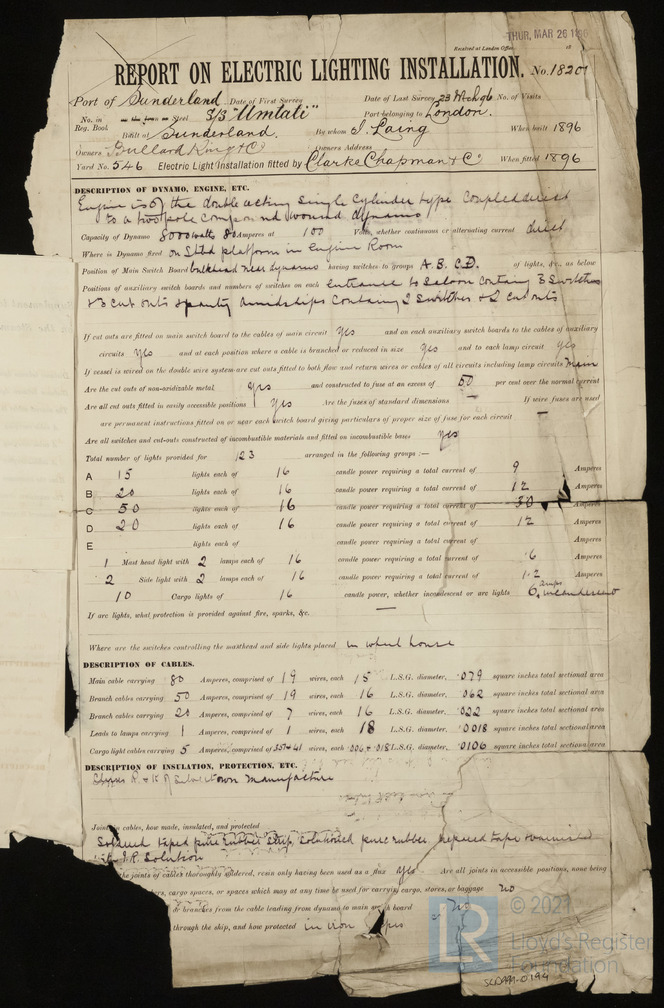 THUR, MAR 26 1896
Received at London Office 18
REPORT ON ELECTRIC LIGHTING INSTALLATION. No. 18201
Port of Sunderland Date of First Survey Date of Last Survey 23 Mch 96 No. of Visits
No. in Reg. Book Steel S/S "Umtali" Port belonging to London.
Built at Sunderland. By whom J. Laing When built 1896
Owners Bullard King & Co Owners Address
Yard No. 546 Electric Light Installation fitted by Clarke Chapman & Co When fitted 1896
DESCRIPTION OF DYNAMO, ENGINE, ETC.
Engine is of the double acting single cylinder type coupled direct
to a two pole compound wound dynamo
Capacity of Dynamo 8000 watts 80 Amperes at 100 Volts, whether continuous or alternating current direct
Where is Dynamo fixed on Stbd platform in Engine Room
Position of Main Switch Board bulkhead near dynamo having switches to groups A. B. C. D. of lights, &c., as below
Positions of auxiliary switch boards and numbers of switches on each entrance to Saloon containg 3 Switches
& 3 cut outs & pantry amidships containg 2 switches & 2 cut outs
If cut outs are fitted on main switch board to the cables of main circuit yes and on each auxiliary switch boards to the cables of auxiliary
circuits yes and at each position where a cable is branched or reduced in size yes and to each lamp circuit yes
If vessel is wired on the double wire system are cut outs fitted to both flow and return wires or cables of all circuits including lamp circuits
Are the cut outs of non-oxidizable metal yes and constructed to fuse at an excess of 50 per cent over the normal current
Are all cut outs fitted in easily accessible positions yes Are the fuses of standard dimensions — If wire fuses are used
are permanent instructions fitted on or near each switch board giving particulars of proper size of fuse for each circuit —
Are all switches and cut-outs constructed of incombustible materials and fitted on incombustible bases yes
Total number of lights provided for 123 arranged in the following groups :—
A 15 lights each of 16 candle power requiring a total current of 9 Amperes
B 20 lights each of 16 candle power requiring a total current of 12 Amperes
C 50 lights each of 16 candle power requiring a total current of 30 Amperes
D 20 lights each of 16 candle power requiring a total current of 12 Amperes
E lights each of candle power requiring a total current of Amperes
1 Mast head light with 2 lamps each of 16 candle power requiring a total current of .6 Amperes
2 Side light with 2 lamps each of 16 candle power requiring a total current of 1.2 Amperes
10 Cargo lights of 16 candle power, whether incandescent or arc lights 6 amps incandescent
If arc lights, what protection is provided against fire, sparks, &c. —
Where are the switches controlling the masthead and side lights placed in wheel house
DESCRIPTION OF CABLES.
Main cable carrying 80 Amperes, comprised of 19 wires, each 15 L.S.G. diameter, .079 square inches total sectional area
Branch cables carrying 50 Amperes, comprised of 19 wires, each 16 L.S.G. diameter, .062 square inches total sectional area
Branch cables carrying 20 Amperes, comprised of 7 wires, each 16 L.S.G. diameter, .022 square inches total sectional area
Leads to lamps carrying 1 Amperes, comprised of 1 wires, each 18 L.S.G. diameter, .0018 square inches total sectional area
Cargo light cables carrying 5 Amperes, comprised of wires, each .006 & .018 L.S.G. diameter, .0106 square inches total sectional area
DESCRIPTION OF INSULATION, PROTECTION, ETC.
Silvertown manufacture
Joints in cables, how made, insulated, and protected
Soldered taped pure rubber strip, solutioned pure rubber, prepared tape varnished
I.R. Solution
the joints of cables thoroughly soldered, resin only having been used as a flux yes. Are all joints in accessible positions, none being
cargo spaces, or spaces which may at any time be used for carrying cargo, stores, or baggage no
or branches from the cable leading from dynamo to main switch board no
through the ship, and how protected in iron pipes
LR © 2021
Lloyd's Register
Foundation